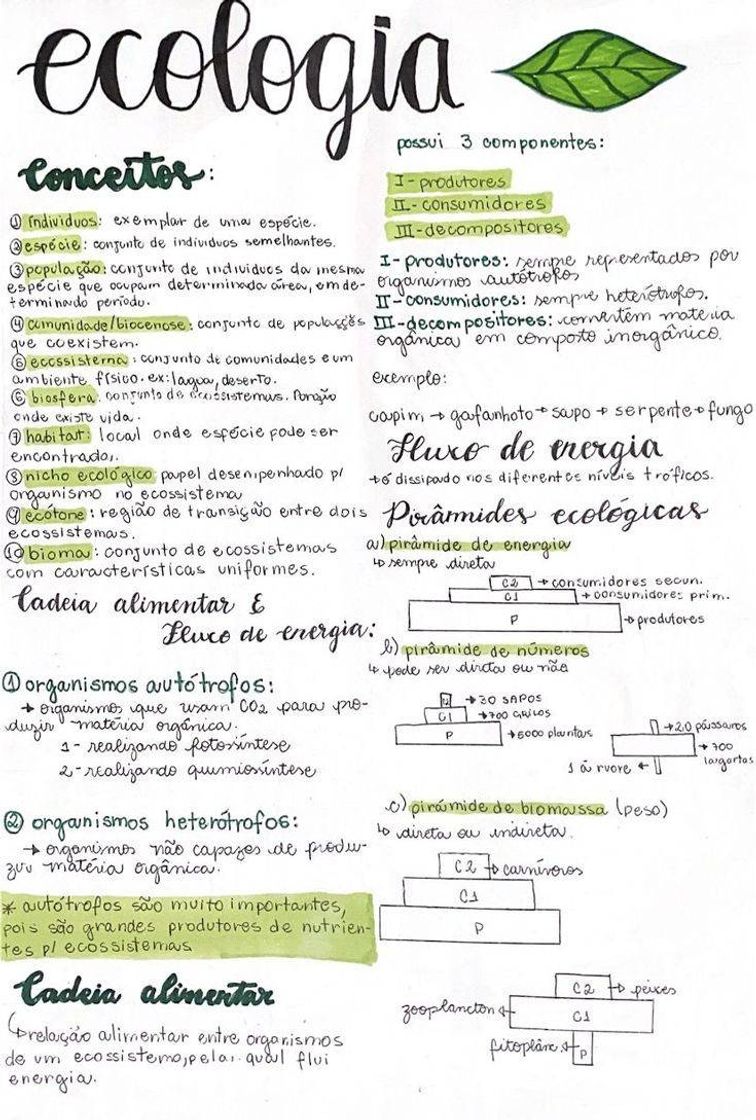 ecologia
Conceitos:
① indivíduos: exemplar de uma espécie.
② espécie: conjunto de indivíduos semelhantes.
③ população: conjunto de indivíduos da mesma
espécie que ocupam determinada área, em de-
terminado período.
④ comunidade/biocenose: conjunto de populações
que coexistem.
⑤ ecossistema: conjunto de comunidades e um
ambiente físico. ex: lagoa, deserto.
⑥ biosfera: conjunto de ecossistemas. Porção
onde existe vida.
⑦ habitat: local onde espécie pode ser
encontrado.
⑧ nicho ecológico papel desempenhado p/
organismo no ecossistema
⑨ ecótone: região de transição entre dois
ecossistemas.
⑩ bioma: conjunto de ecossistemas
com características uniformes.
Cadeia alimentar E
Fluxo de energia:
① organismos autótrofos:
→ organismos que usam CO2 para pro-
duzir matéria orgânica.
1- realizando fotossíntese
2- realizando quimiossíntese
② organismos heterótrofos:
→ organismos não capazes de produ-
zir matéria orgânica.
* autótrofos são muito importantes,
pois são grandes produtores de nutrien-
tes p/ ecossistemas
Cadeia alimentar
↳ relação alimentar entre organismos
de um ecossistema, pela qual flui
energia.
possui 3 componentes:
I - produtores
II - consumidores
III - decompositores
I - produtores: sempre representados por
organismos autótrofos
II - consumidores: sempre heterótrofos.
III - decompositores: convertem matéria
orgânica em composto inorgânico.
exemplo:
capim → gafanhoto → sapo → serpente → fungo
Fluxo de energia
→ é dissipado nos diferentes níveis tróficos.
Pirâmides ecológicas
a) pirâmide de energia
↳ sempre direta
C2 → consumidores secun.
C1 → consumidores prim.
P → produtores
b) pirâmide de números
↳ pode ser direta ou não
C2 → 30 SAPOS
C1 → 700 GRILOS
P → 5000 plantas
→ 20 pássaros
→ 700
lagartas
1 árvore ←
c) pirâmide de biomassa (peso)
↳ direta ou indireta.
C2 → carnívoros
C1
P
C2 → peixes
zooplancton ← C1
fitoplânc. ← P